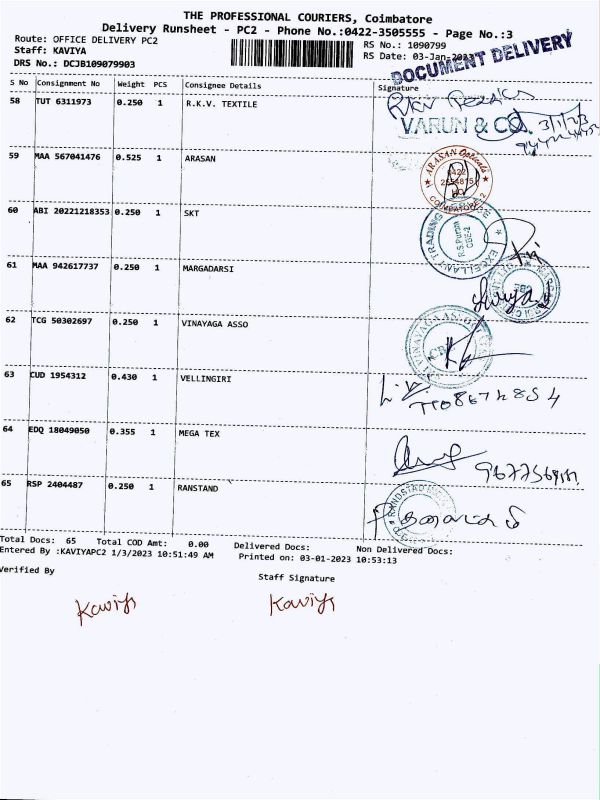 THE PROFESSIONAL COURIERS, Coimbatore
Delivery Runsheet - PC2 - Phone No.:0422-3505555 - Page No.:3
Route: OFFICE DELIVERY PC2
RS No.: 1090799
Staff: KAVIYA
RS Date: 03-Jan-2023
DRS No.: DCJB109079903
DOCUMENT DELIVERY
S No Consignment No Weight PCS Consignee Details Signature
58 TUT 6311973 0.250 1 R.K.V. TEXTILE
VARUN & CO.
3/1/23
59 MAA 567041476 0.525 1 ARASAN
ARASAN Opticals
COIMBATORE-2
60 ABI 20221218353 0.250 1 SKT
EXCELLANT TRADING
R.S.Puram
CBE-2
61 MAA 942617737 0.250 1 MARGADARSI
62 TCG 50302697 0.250 1 VINAYAGA ASSO
63 CUD 1954312 0.430 1 VELLINGIRI
64 EDQ 18049050 0.355 1 MEGA TEX
65 RSP 2404487 0.250 1 RANSTAND
Total Docs: 65 Total COD Amt: 0.00 Delivered Docs: Non Delivered Docs:
Entered By :KAVIYAPC2 1/3/2023 10:51:49 AM Printed on: 03-01-2023 10:53:13
Verified By
Staff Signature
Kaviya
Kaviya